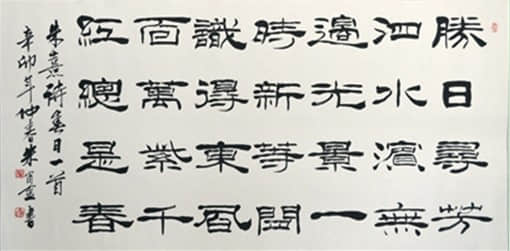 勝日尋芳
泗水濱無
邊光景一
時新等閒
識得東風
面萬紫千
紅總是春
朱熹詩春日一首
辛卯年仲春 書